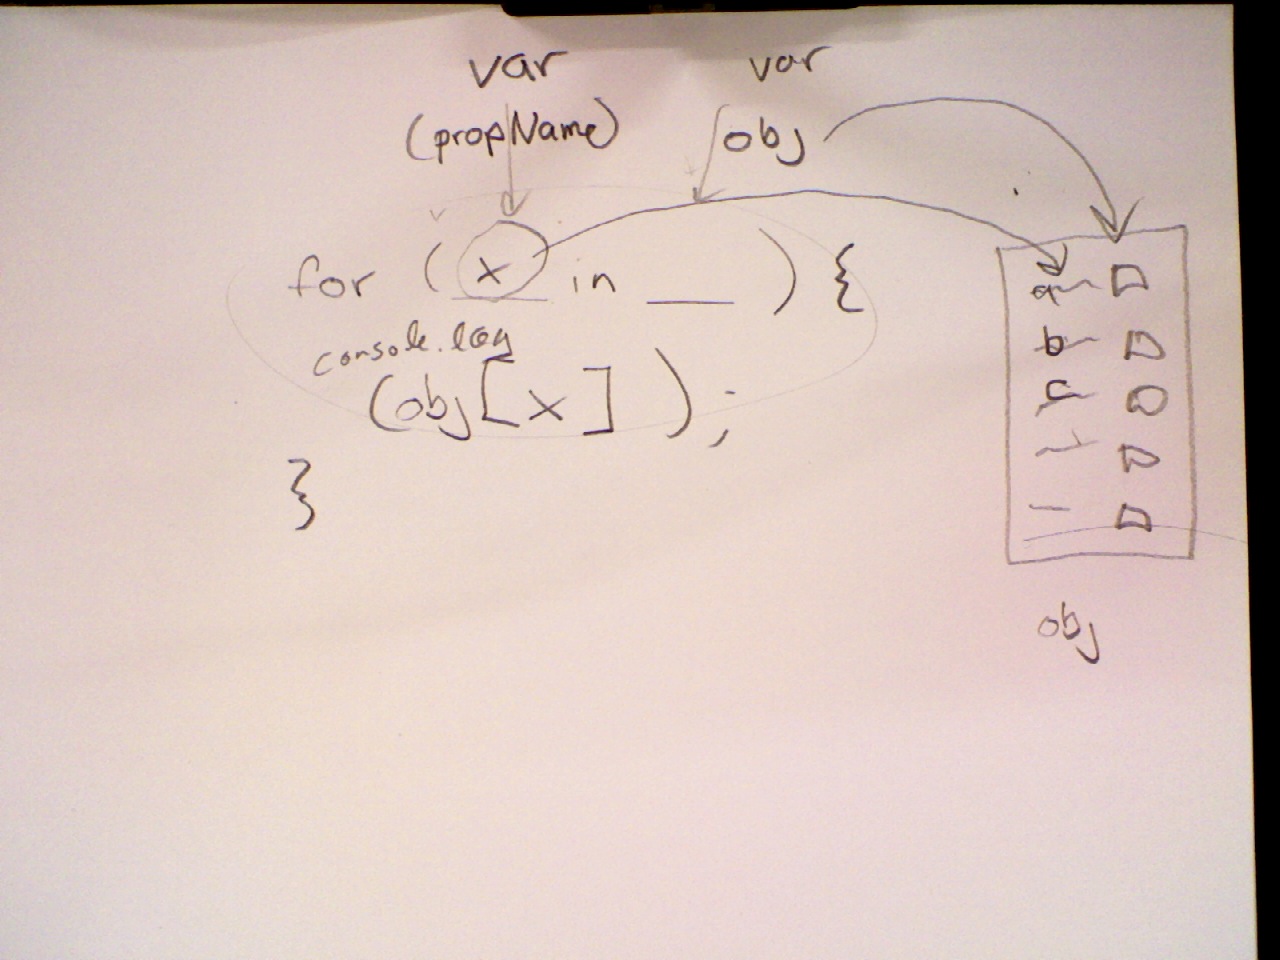 var var
(propName) obj
for ( x in ___ ) {
console.log
(obj[x] );
}
a
b
c
obj